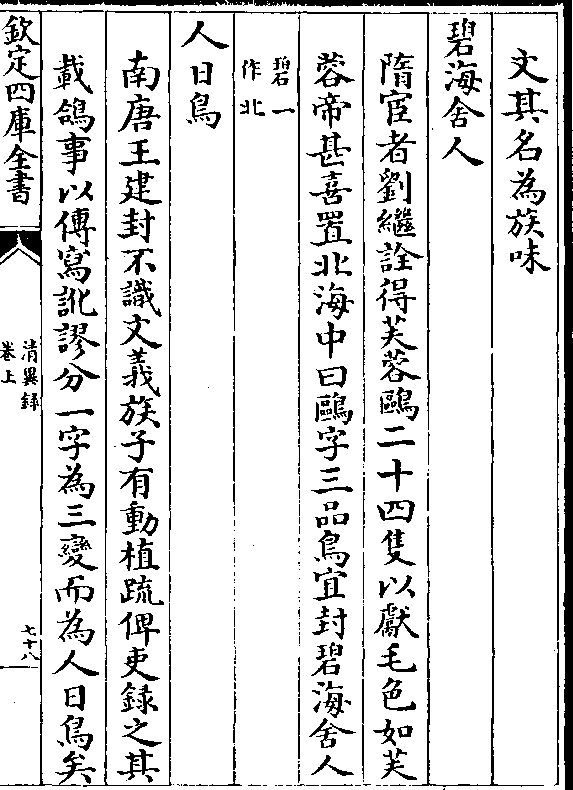 文其名為族味
碧海舍人
隋宦者劉繼詮得芙蓉鷗二十四隻以獻毛色如芙
蓉帝甚喜置北海中曰鷗字三品鳥宜封碧海舍人
碧一
作北
人日鳥
南唐王建封不識文義族子有動植疏俾吏錄之其
載鴿事以傳寫訛謬分一字為三變而為人日鳥矣
欽定四庫全書
清異録
卷上
七十八